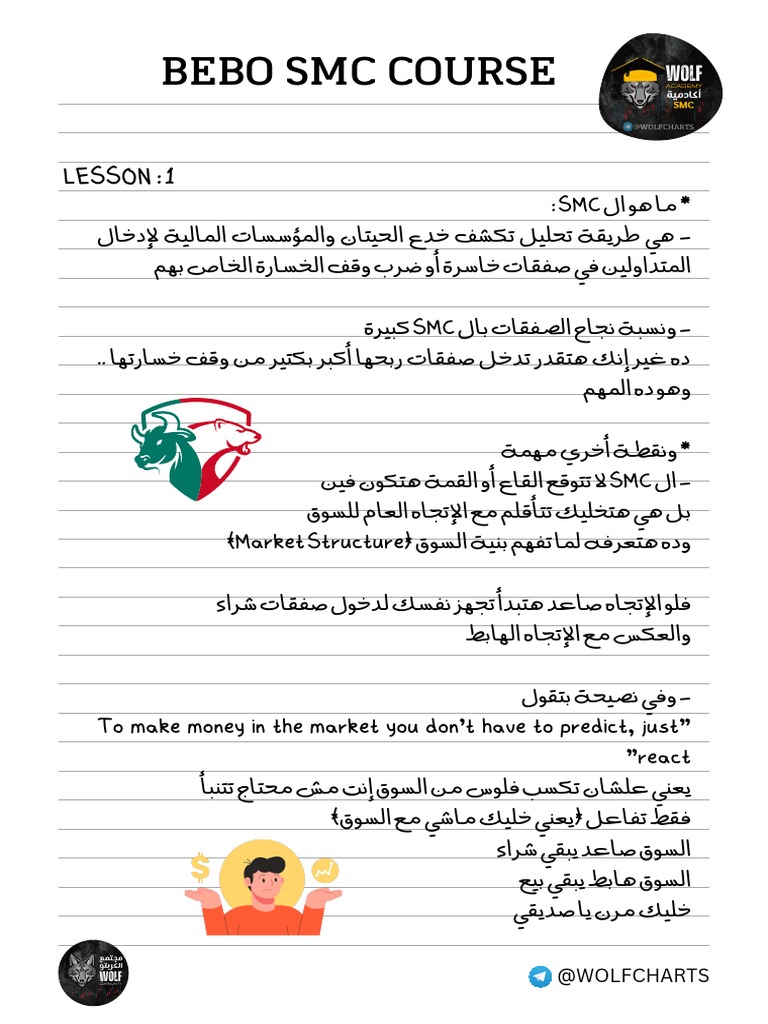 BEBO SMC COURSE
WOLF
ACADEMY
أكاديمية
SMC
@WOLFCHARTS
LESSON : 1
* ما هو ال SMC :
- هي طريقة تحليل تكشف خدع الحيتان والمؤسسات المالية لإدخال
المتداولين في صفقات خاسرة أو ضرب وقف الخسارة الخاص بهم
- ونسبة نجاح الصفقات بال SMC كبيرة
ده غير إنك هتقدر تدخل صفقات ربحها أكبر بكتير من وقف خسارتها ..
وهو ده المهم
* ونقطة أخري مهمة
- ال SMC لا تتوقع القاع أو القمة هتكون فين
بل هي هتخليك تتأقلم مع الإتجاه العام للسوق
وده هتعرفه لما تفهم بنية السوق {Market Structure}
فلو الإتجاه صاعد هتبدأ تجهز نفسك لدخول صفقات شراء
والعكس مع الإتجاه الهابط
- وفي نصيحة بتقول
"To make money in the market you don't have to predict, just
react"
يعني علشان تكسب فلوس من السوق إنت مش محتاج تتنبأ
فقط تفاعل {يعني خليك ماشي مع السوق}
السوق صاعد يبقي شراء
السوق هابط يبقي بيع
خليك مرن يا صديقي
مجتمع
الكريبتو
WOLF
COMMUNITY
@WOLFCHARTS